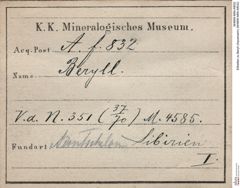 K. K. Mineralogisches Museum.
Acq. Post. A. f. 832
Name: Beryll.
V. d. N. 351 (37/70) M. 4585.
Fundort: Sibirien
I.